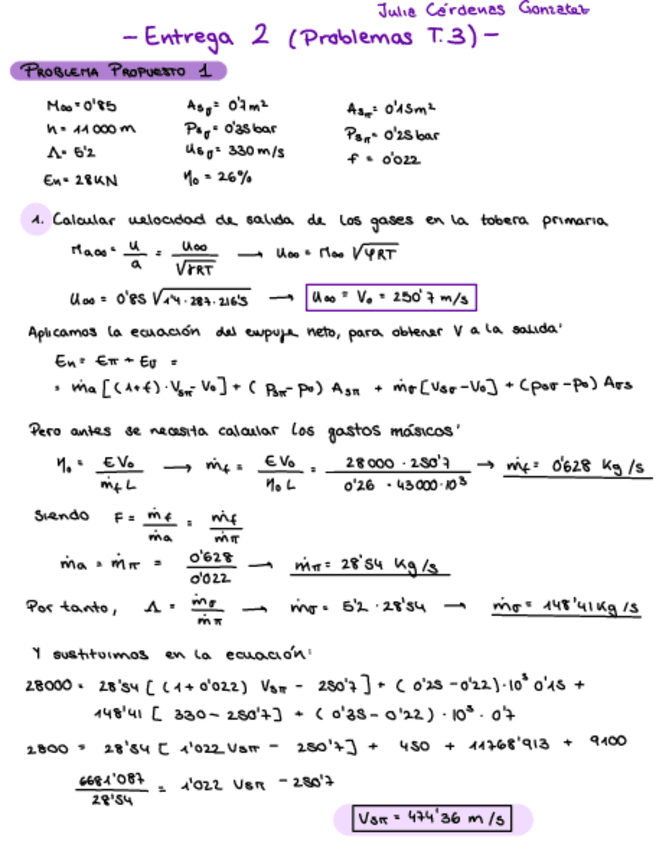 Julia Cárdenas Gonzalez
- Entrega 2 (Problemas T.3) -
PROBLEMA PROPUESTO 1
M∞ = 0'85   A₅σ = 0'7 m²   A₅π = 0'15 m²
h = 11 000 m   P₅σ = 0'35 bar   P₅π = 0'25 bar
Λ = 5'2   u₅σ = 330 m/s   f = 0'022
En = 28KN   η₀ = 26%
1. Calcular velocidad de salida de los gases en la tobera primaria
Ma∞ = u/a = u∞/√(γRT) → u∞ = M∞ √(γRT)
u∞ = 0'85 √(1'4 · 287 · 216'5) → u∞ = V₀ = 250'7 m/s
Aplicamos la ecuación del empuje neto, para obtener V a la salida:
En = Eπ + Eσ =
= ṁa [(1+f) · V₅π - V₀] + (P₅π - P₀) A₅π + ṁσ [V₅σ - V₀] + (P₅σ - P₀) Aσ5
Pero antes se necesita calcular los gastos másicos:
η₀ = E V₀/ṁf L → ṁf = E V₀/η₀ L = 28000 · 250'7/0'26 · 43000·10³ → ṁf = 0'628 Kg/s
Siendo F = ṁf/ṁa = ṁf/ṁπ
ṁa = ṁπ = 0'628/0'022 → ṁπ = 28'54 Kg/s
Por tanto, Λ = ṁσ/ṁπ → ṁσ = 5'2 · 28'54 → ṁσ = 148'41 Kg/s
Y sustituimos en la ecuación:
28000 = 28'54 [(1+0'022) V₅π - 250'7] + (0'25 - 0'22)·10⁵ 0'15 +
148'41 [330 - 250'7] + (0'35 - 0'22) · 10⁵ · 0'7
2800 = 28'54 [1'022 V₅π - 250'7] + 450 + 11768'913 + 9100
6681'087/28'54 = 1'022 V₅π - 250'7
V₅π = 474'36 m/s